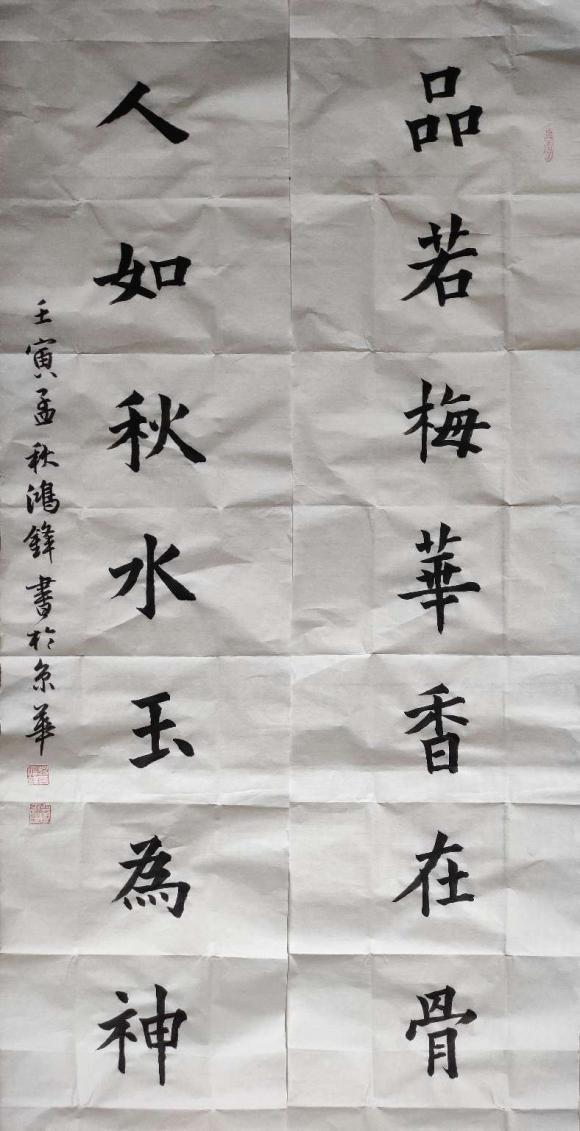 品若梅華香在骨
人如秋水玉為神
壬寅孟秋鴻鋒書於京華